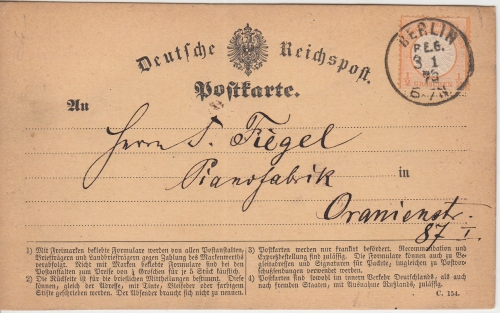 Deutsche Reichspost.
Postkarte.
BERLIN
P.E.6.
3 1
73
6-7N.
An
Herrn T. Fiegel
Pianofabrik
in
Oranienstr.
87 I.
1) Mit Freimarken beklebte Formulare werden von allen Postanstalten, Briefträgern und Landbriefträgern gegen Zahlung des Markenwerths verabfolgt. Nicht mit Marken beklebte Formulare sind bei den Postanstalten zum Preise von ½ Groschen für je 5 Stück käuflich.
2) Die Rückseite ist für die brieflichen Mittheilungen bestimmt. Diese können, gleich der Adresse, mit Tinte, Bleifeder oder farbigem Stifte geschrieben werden. Der Absender braucht sich nicht zu nennen.
3) Postkarten werden nur frankirt befördert. Recommandation und Expreßbestellung sind zulässig. Die Formulare können auch zu Begleitadressen und Signaturen für Packete, imgleichen zu Postvorschußsendungen verwendet werden.
4) Postkarten sind sowohl im innern Verkehr Deutschlands, als auch nach fremden Staaten, mit Ausnahme Rußlands, zulässig.
C. 154.